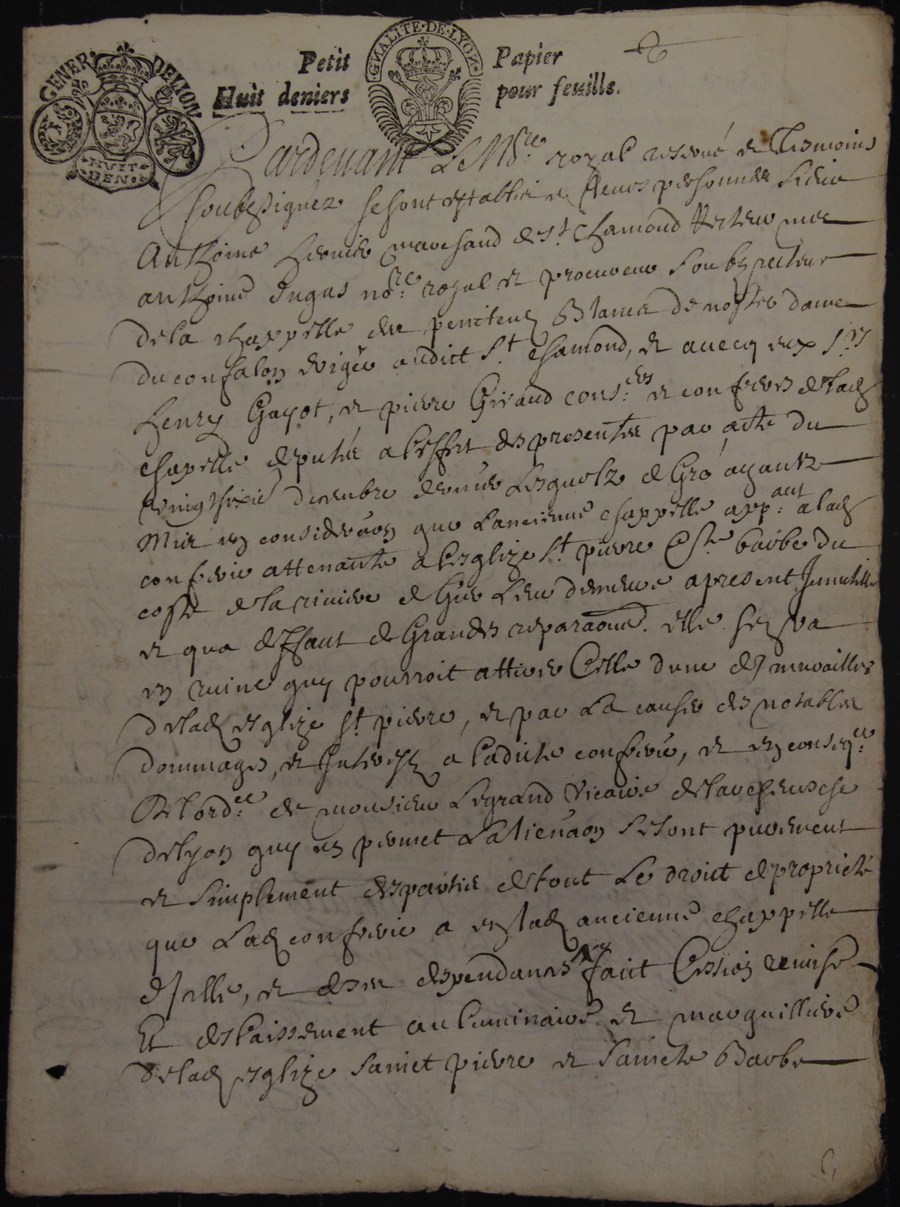 GENER DE LION
HUIT DEN
Petit
Huit deniers
GNALITE·DE·LYON
Papier
pour feuille.
Pardevant Le Nre royal reservé et Tesmoins
Soubsignéz se sont establies en leurs personnes Sieur
Anthoine marchand de St Chamond Recteur me
anthoine Dugas nore royal et procureur Soubzrecteur
de la chappelle des penitens Blancs de nostre dame
du confalon erigée audict St Chamond, et avecq eux Srs
henry Gayot, et pierre Giraud consers et confreres de lad
chapelle deputés a l'effet des presentes par acte du
vingtsixie decembre dernier Lesquelz de Gré ayantz
Mis en consideraon que Lancienne chappelle appant a lad
confrerie attenante a l'esglize St pierre Ste barbe du
costé de la riviere de Gier Leur demeure apresent Innutille
et qua deffaut de Grandes reparaons. elle sen va
en ruine quy pourroit attirer Celle dune des murailles
de lad esglize St pierre, et par La causer des notables
dommages, et Interestz a ladite confrerie, et en conseqce
de lordce de monsieur Legrand Vicaire de larchevesché
de lyon quy en permet Lalienaon se sont purement
et simplement despartis de tout Le droict de proprieté
que Lad confrerie a en lad ancienne chappelle
d'Icelle, et de ses despendances faict Cession remise
Et deslaissement au Luminaire et marguilliers
de lad esglize sainct pierre et saincte Barbe